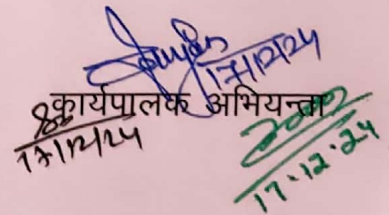 17/12/24
कार्यपालक अभियन्ता
17/12/24
17.12.24